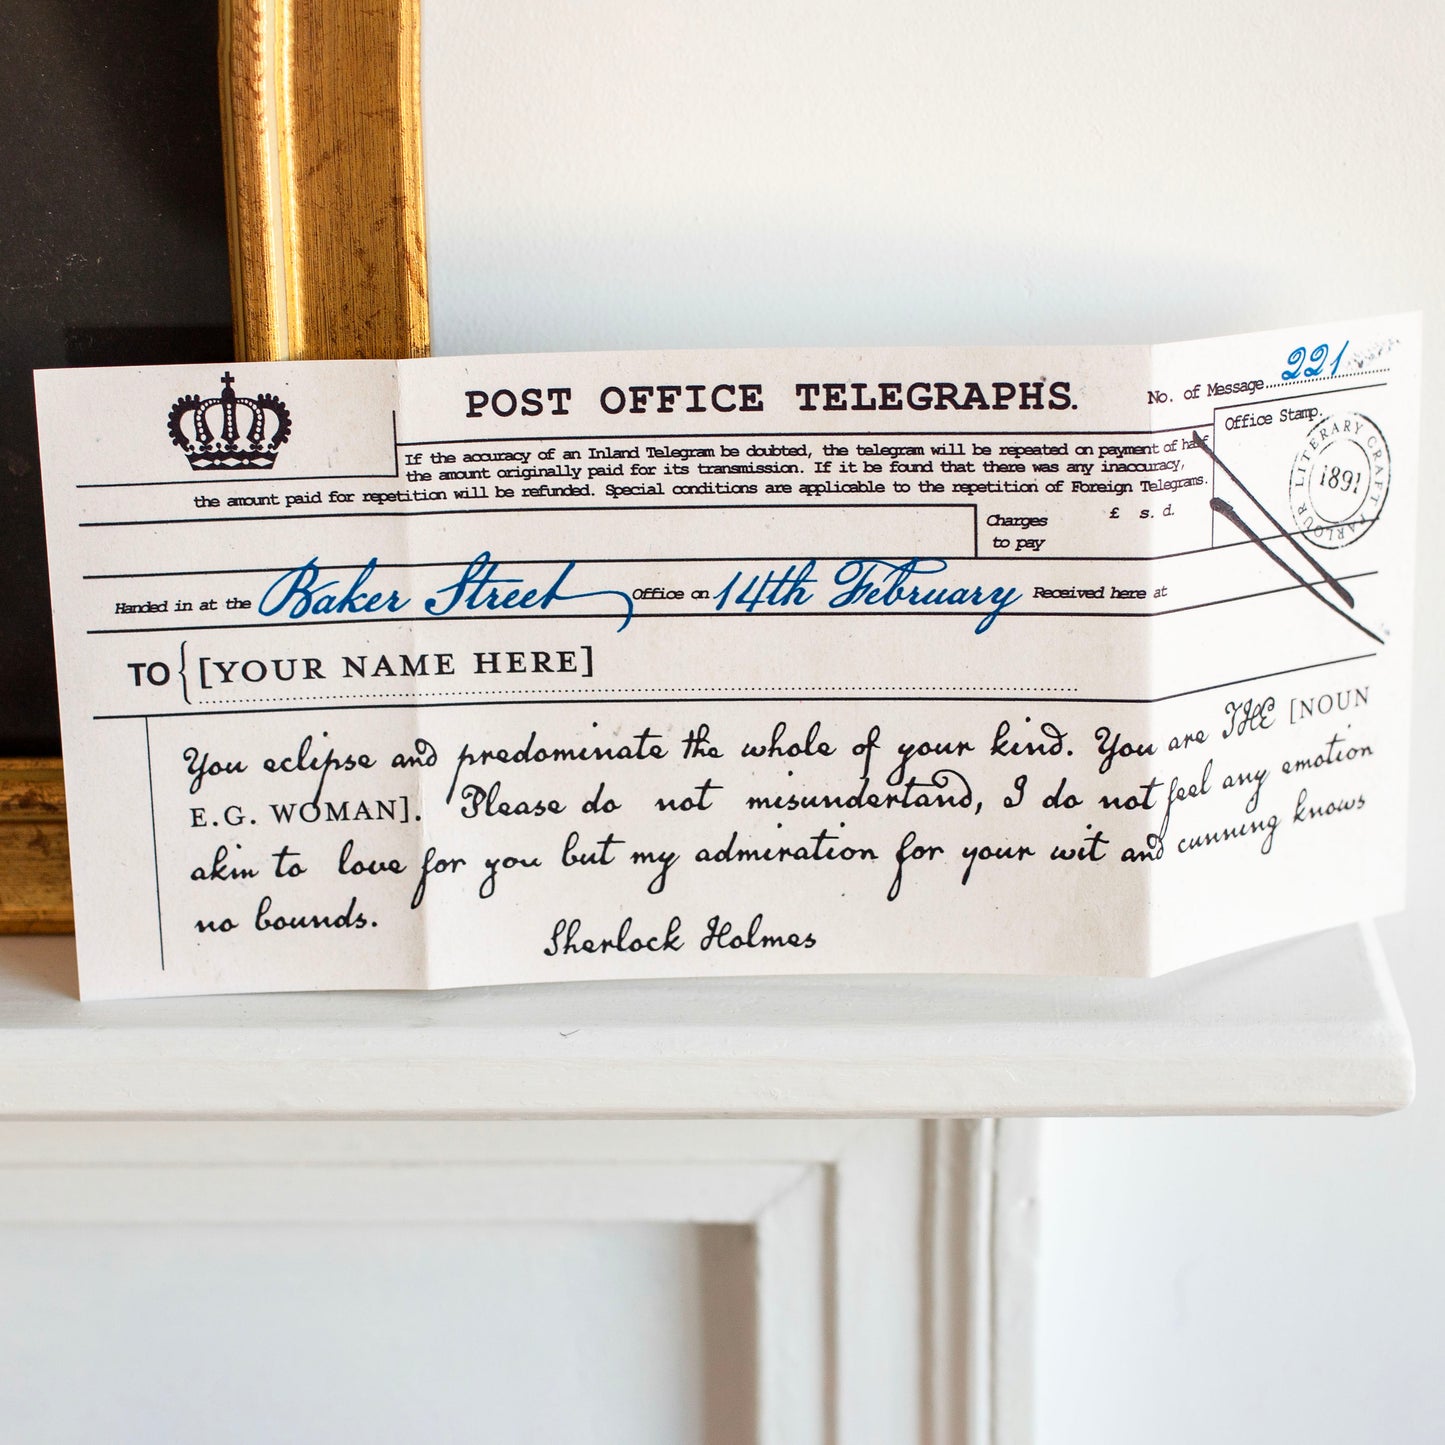 POST OFFICE TELEGRAPHS.
No. of Message 221
If the accuracy of an Inland Telegram be doubted, the telegram will be repeated on payment of half
the amount originally paid for its transmission. If it be found that there was any inaccuracy,
the amount paid for repetition will be refunded. Special conditions are applicable to the repetition of Foreign Telegrams.
Office Stamp.
LITERARY CRAFT PARLOUR
1891
Charges
to pay
£ s. d.
Handed in at the Baker Street Office on 14th February Received here at
TO {[YOUR NAME HERE]
You eclipse and predominate the whole of your kind. You are THE [NOUN
E.G. WOMAN]. Please do not misunderstand, I do not feel any emotion
akin to love for you but my admiration for your wit and cunning knows
no bounds.
Sherlock Holmes